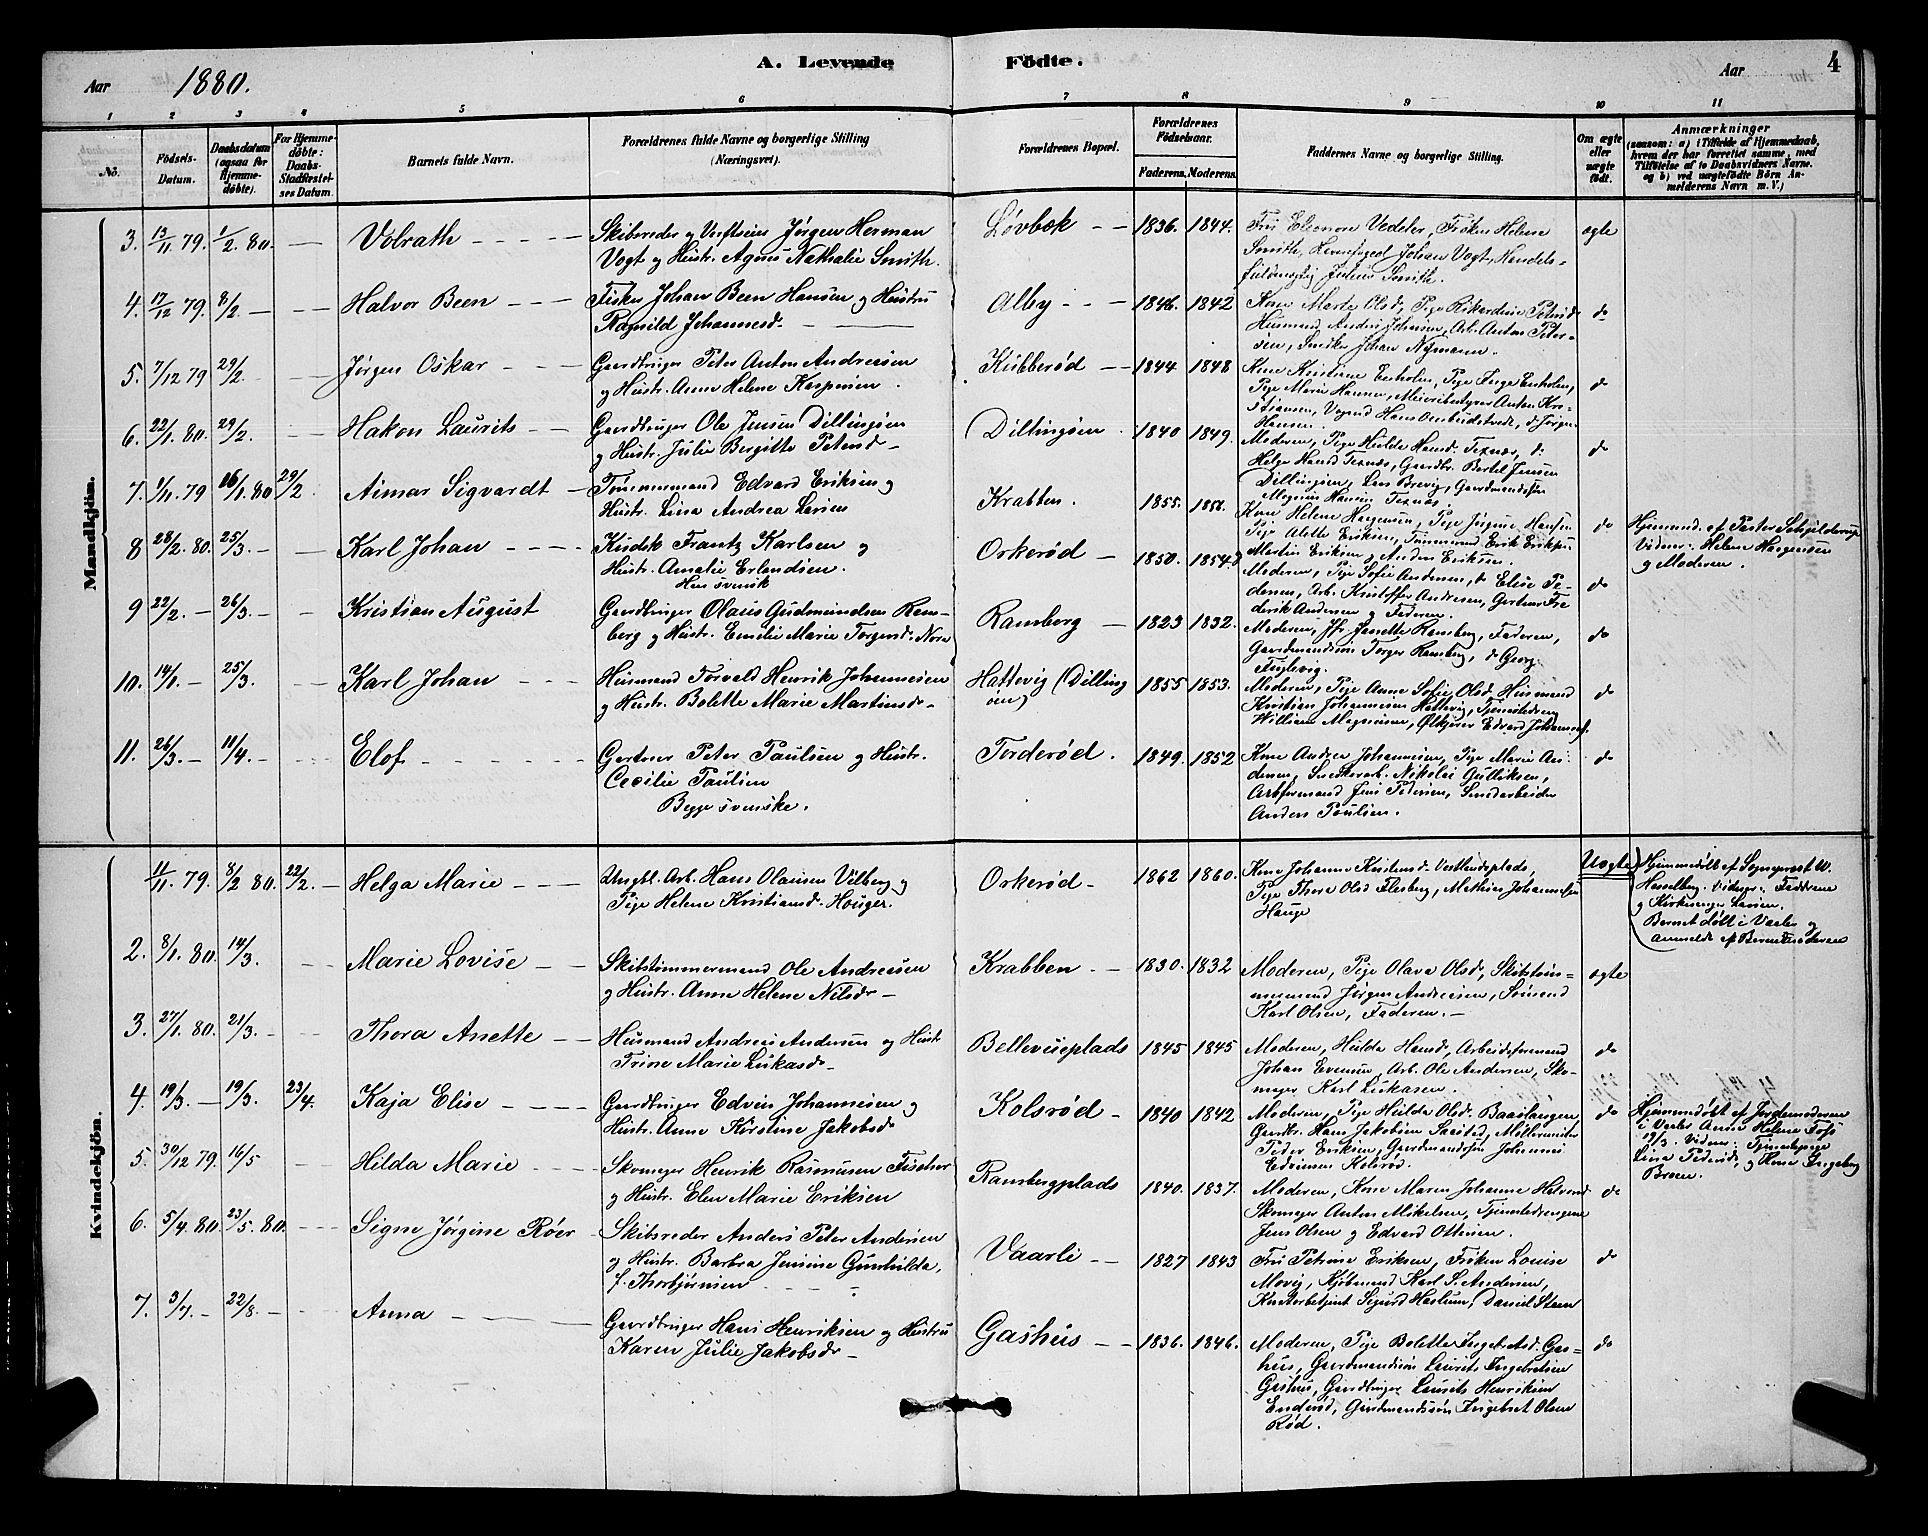 Aar 1880. A. Levende Födte. Aar 4
1 2 3 4 5 6 7 8 9 10 11
No. Födsels-Datum. Daabsdatum (ogsaa for Hjemmedöbte). For Hjemmedöbte: Daabs-Stadfæstelses Datum. Barnets fulde Navn. Forældrenes fulde Navne og borgerlige Stilling (Næringsvei). Forældrenes Bopæl. Forældrenes Födselsaar. Faderens. Moderens. Faddernes Navne og borgerlige Stilling. Om ægte eller uægte födt. Anmærkninger (saasom: a) i Tilfælde af Hjemmedaab, hvem der har forrettet samme, med Tilföielse af to Daabsvidners Navne. og b) ved uægtefödte Börn Anmelderens Navn m. V.)
Mandkjön.
3. 13/11 79. 1/2 80. — Volrath Skibsreder og Verftseier Jørgen Herman
Vogt og Hustr. Agnes Nathalie Smith.
Løvbæk 1836. 1844. Fru Eleonore Vedeler, Frøken Helene
Smith, Johan Vogt, Handels-
fuldmægtig Julius Smith.
ægte
4. 17/12 79. 8/2 — Halvor Been Fisker Johan Been Hansen og Hustru
Ragnild Johannesd.
Alby 1846. 1842 Kone Marte Olsd, Pige Rikardine Petersd
Husmand Anders Johnsen, Arb. Anton Peter-
sen, Snedker Johan Nymann.
do
5. 7/12 79 29/2. Jørgen Oskar Gaardbruger Peter Anton Andreasen
og Hustr. Anne Helene Kaspersen.
Kubberød 1844 1848 Kone Kristiane Enholm, Pige Inga Enholm,
Pige Marie Hansen, Meieribestyrer Anton Kri-
stiansen, Hans Ombudstvedt, d. Jørgen
Hansen.
do
6. 22/1. 80. 29/2. Hakon Laurits Gaardbruger Ole Jensen Dillingøen
og Hustr. Julie Bergitte Petersd
Dillingøen. 1840 1849. Moderen, Pige Hulda Hansd. Texnæs, d.
Helga Hansd Texnæs, Gaardbr. Bertel Jensen
Dillingøen, Lars Brevig, Gaardmandssøn
Magnus Hansen Texnæs
do
7. 1/11. 79 16/1. 80 29/2. Aimar Sigvardt Tømmermand Edvard Eriksen og
Hustr. Lina Andrea Larsen
Krabben. 1855. Kone Helene Haagensen, Pige Jørgine Hansen
Pige Alette Eriksen, Tømmermand Erik Eriksen
Martin Eriksen og Anders Eriksen.
do Hjemmed. af Pastor Schjelderup
Vidner: Helene Haagensen
og Moderen.
8 28/2. 80. 25/3. — Karl Johan Kudsk Frantz Karlsen og
Hustr. Amalie Erlandsen.
Hun svensk
Orkerød 1850. 1854 Moderen, Pige Sofie Andersen, d. Elise Pe-
dersen, Arb. Kristoffer Andersen, Gartner Fre
derik Andersen og Faderen.
do
9 22/2. — 26/3. — Kristian August Gaardbruger Olaus Gudmundsen Ram-
berg og Hustr. Emilie Marie Torgersd. Nore
Ramberg 1823 1832. Moderen, Jfr. Janette Ramberg, Faderen,
Gaardmandssøn Torger Ramberg, d. Georg
Fuglevig.
do
10. 14/1. — 25/3. Karl Johan Husmand Torvald Henrik Johannesen
og Hustr. Bolette Marie Martinsdr.
Hattevig (Dilling
øen) 1855 1853. Moderen, Pige Anne Sofie Olsd, Husmand
Kristian Johannesen Hattevig, Tjenestedreng
William Magnusen, Ølkjører Edvard Johannesen.
do
11. 26/3. — 11/4. — Elof Gartner Peter Paulsen og Hustr.
Cecilie Paulsen
Begge svenske.
Torderød. 1849. 1852 Kone Andrea Johannesen, Pige Marie An-
dersen, Snedkerarb. Nikolai Gulliksen,
Arbformand Jens Pedersen, Smedarbeider
Anders Poulsen.
do
Kvindekjön.
11/11. 79. 8/2 80. 22/2. — Helga Marie Ungkl. Arb. Hans Olausen Vilberg og
Pige Helene Kristiansd. Houger.
Orkerød 1862 1860. Kone Johanne Knutsend. Vestlundsplads,
Pige Thora Olsd Flesberg, Mathias Johannesen
Hauge
Uægte Hjemmedøbt af Sogneprest W.
Hasselberg. Vidner: Fadderne
og Kirkesanger Larsen.
Barnet født i Vaaler og
anmeldt af Barnefaderen
2. 8/1. 80. 14/3. Marie Lovise Skibstømmermand Ole Andreasen
og Hustr. Anne Helene Nilsdr
Krabben. 1830. 1832 Moderen, Pige Olava Olsd, Skibstøm-
mermand Jørgen Andreasen, Sømand
Karl Olsen, Faderen.
ægte
3. 27/1. 80. 21/3. — Thora Anette Husmand Andreas Andersen og Hustr
Trine Marie Lukasdr
Bellevueplads 1845 1845 Moderen, Hulda Hansd, Arbeidsformand
Johan Evensen, Arb. Ole Andersen, Sko-
mager Karl Lukasen.
do
4. 19/3. — 19/3. 23/4. Kaja Elise Gaardbruger Edvin Johannesen og
Hustr. Anne Kirstine Jakobsdr
Kolsrød 1840 1842. Moderen, Pige Hulda Olsd. Baastangen
Gaardbr. Hans Jakobsen Saasted, Møllermester
Peder Eriksen, Gaardmandssøn Johannes
Edvinsen Kolsrød.
do Hjemmedøbt af Jordemoderen
i Vaaler Anne Helene Fosf
19/3. Vidner: Tjenestepige
Lina Pedersd, og Kone Ingeborg
Broen.
5. 30/12 79. 16/5 Hilda Marie Skomager Henrik Rasmusen Fischer
og Hustr. Elen Marie Eriksen
Rambergplads 1840. 1837. Moderen, Kone Maren Johanne Halvorsd
Skomager Anton Mikelsen, Tjenestedrengene
Jens Olsen og Edvard Ottersen.
do
6. 5/4. 80. 23/5. 80. Signe Jørgine Røer Skibsreder Anders Peter Andersen
og Hustr. Barbra Jensine Gunhilda,
f. Thorbjørnsen
Vaarli 1827 1843 Fru Petrine Eriksen, Frøken Louise
Movig, Kjøbmand Karl S. Andersen,
Kontorbetjent Sigurd Haslum, Daniel Steen
do
7. 3/7. — 22/8. — Anna Gaardbruger Hans Henriksen og Hustru
Karen Julie Jakobsdr
Gashus 1836. 1846. Moderen, Pige Bolette Ingebretsd. Gas-
hus, Gaardmandssøn Laurits Ingebretsen
Gashus, Gaardbruger Laurits Henriksen
Enderød, Gaardmandssøn Ingebret Olsen
Rød.
do